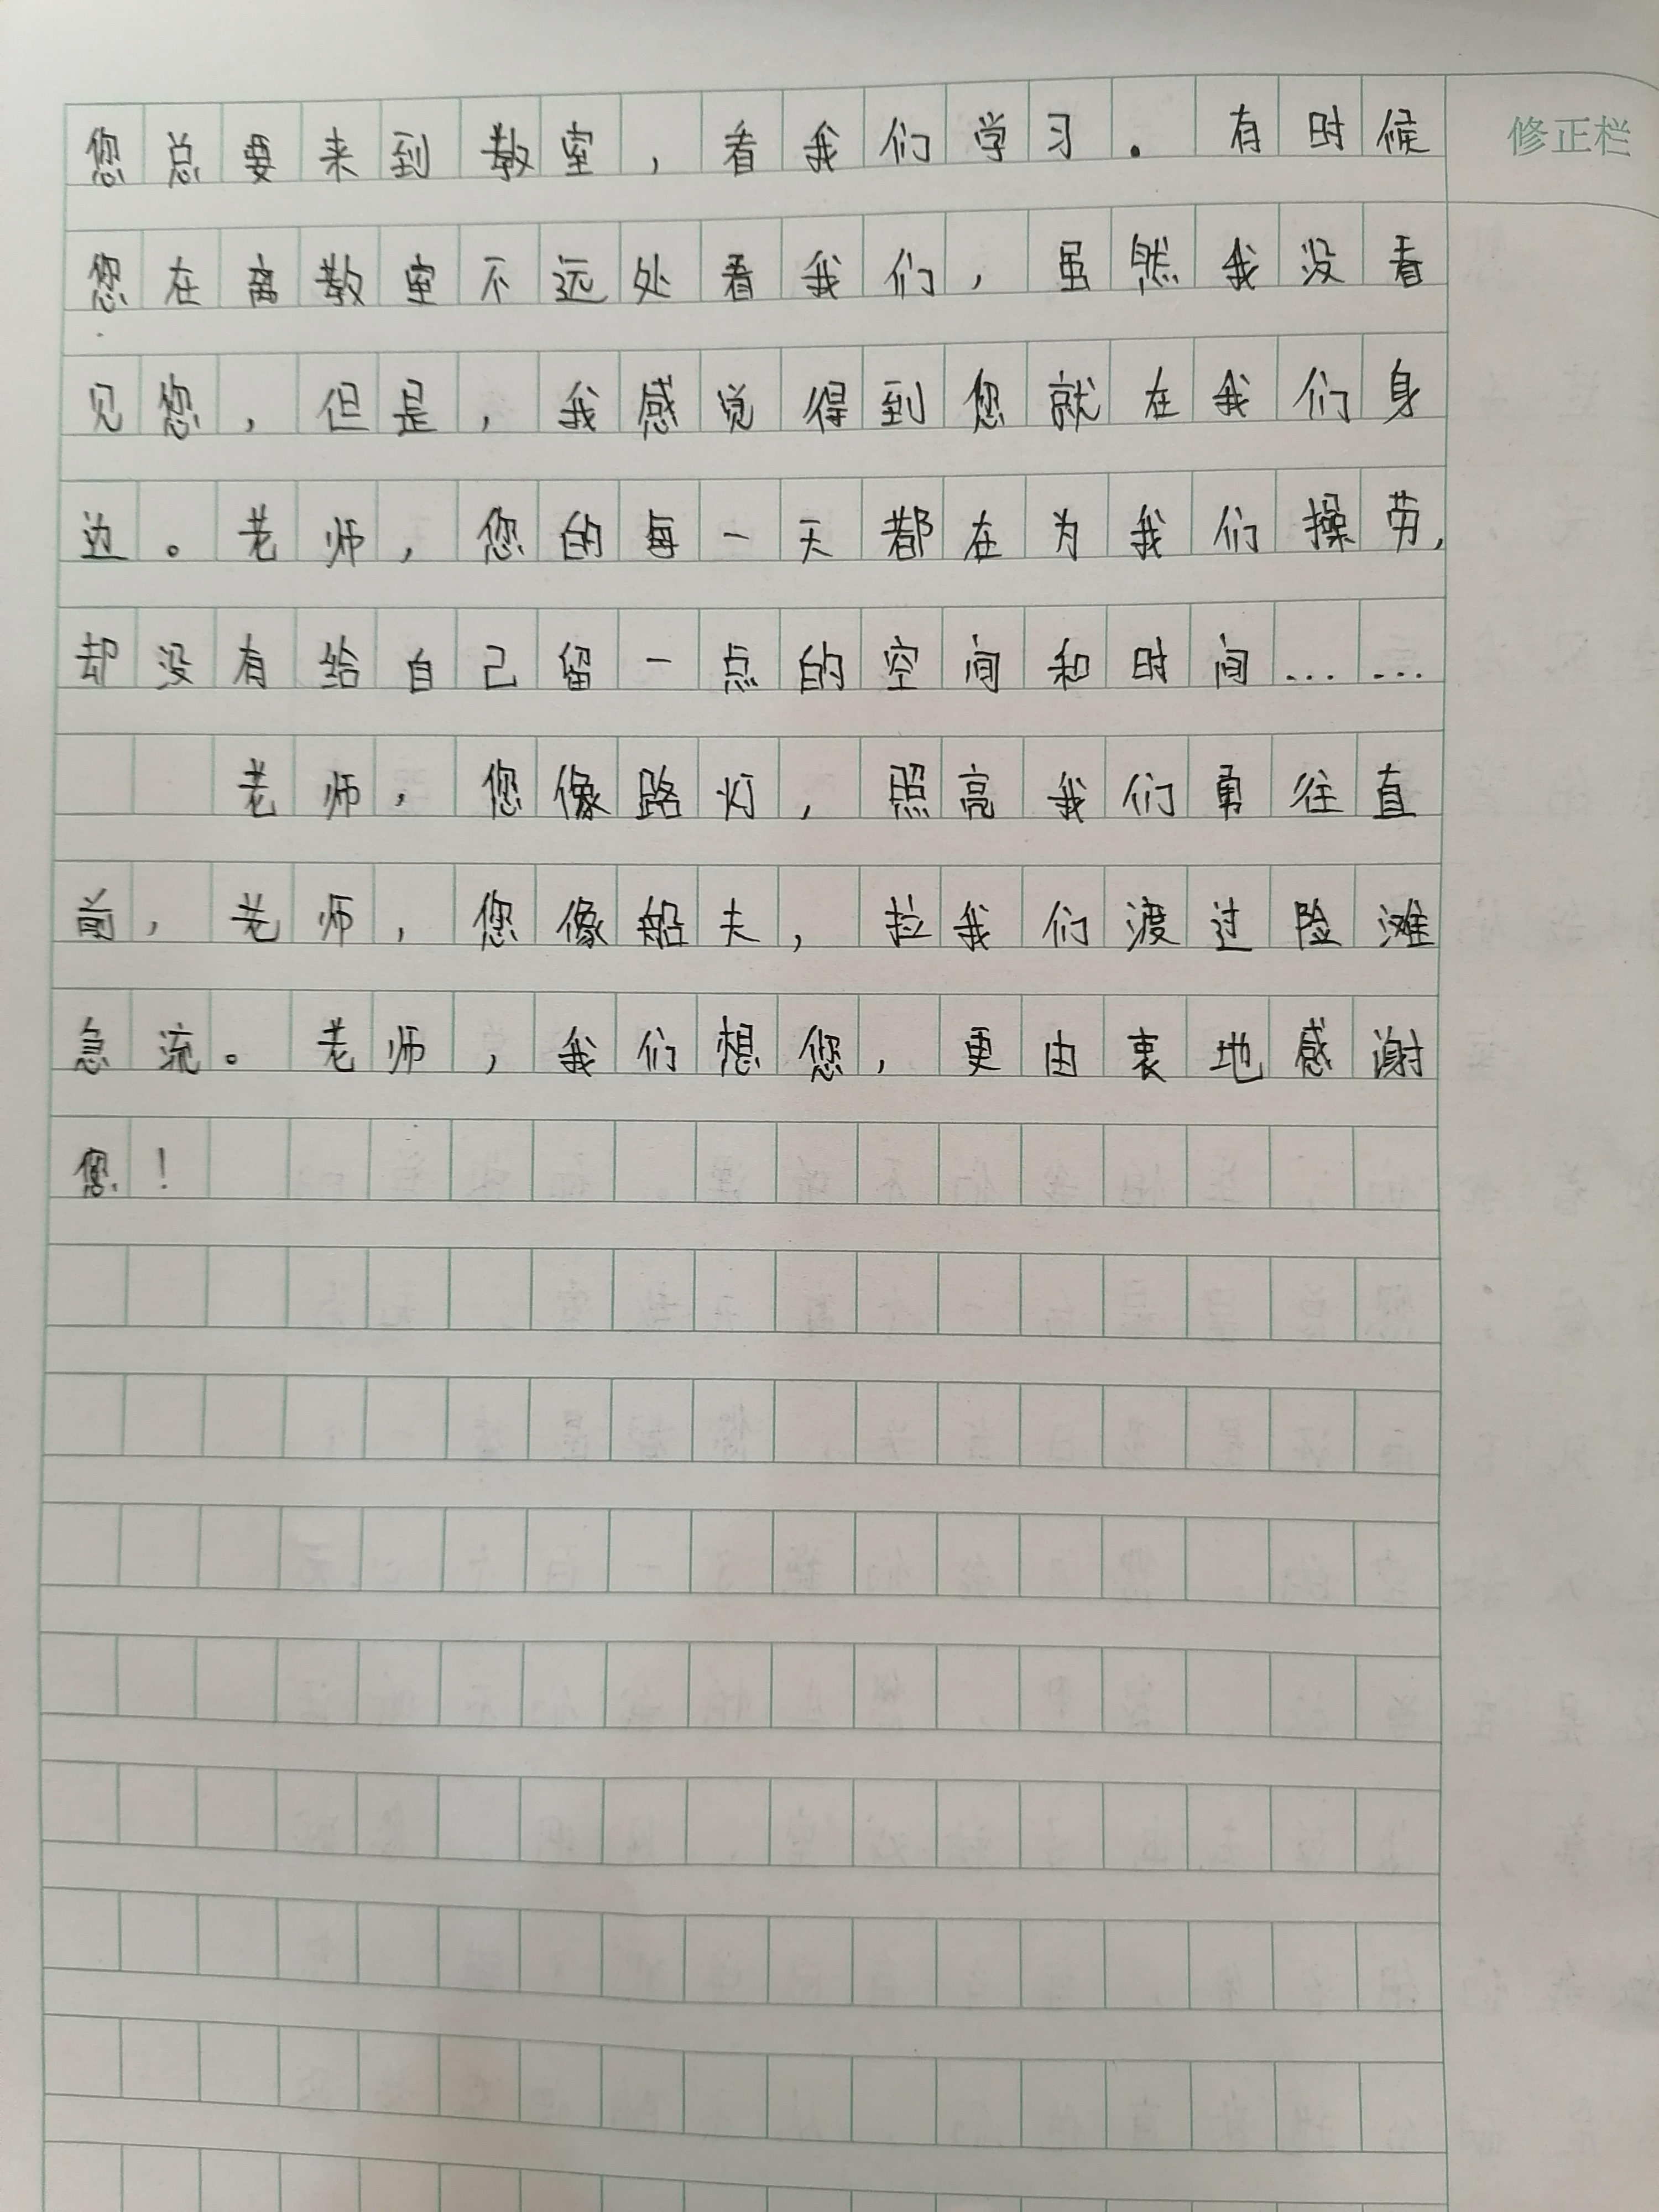 您总要来到教室，看我们学习。有时候
修正栏
您在离教室不远处看我们，虽然我没看
见您，但是，我感觉得到您就在我们身
边。老师，您的每一天都在为我们操劳，
却没有给自己留一点的空间和时间……
老师，您像路灯，照亮我们勇往直
前，老师，您像船夫，拉我们渡过险滩
急流。老师，我们想您，更由衷地感谢
您！